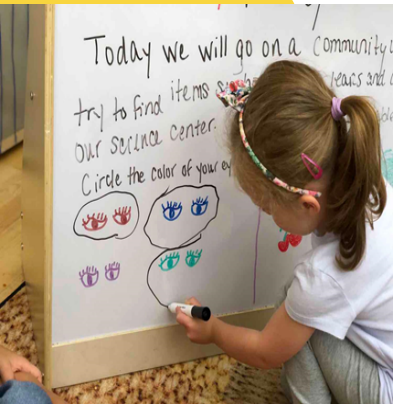 Today we will go on a community
try to find items
our science center.
Circle the color of your